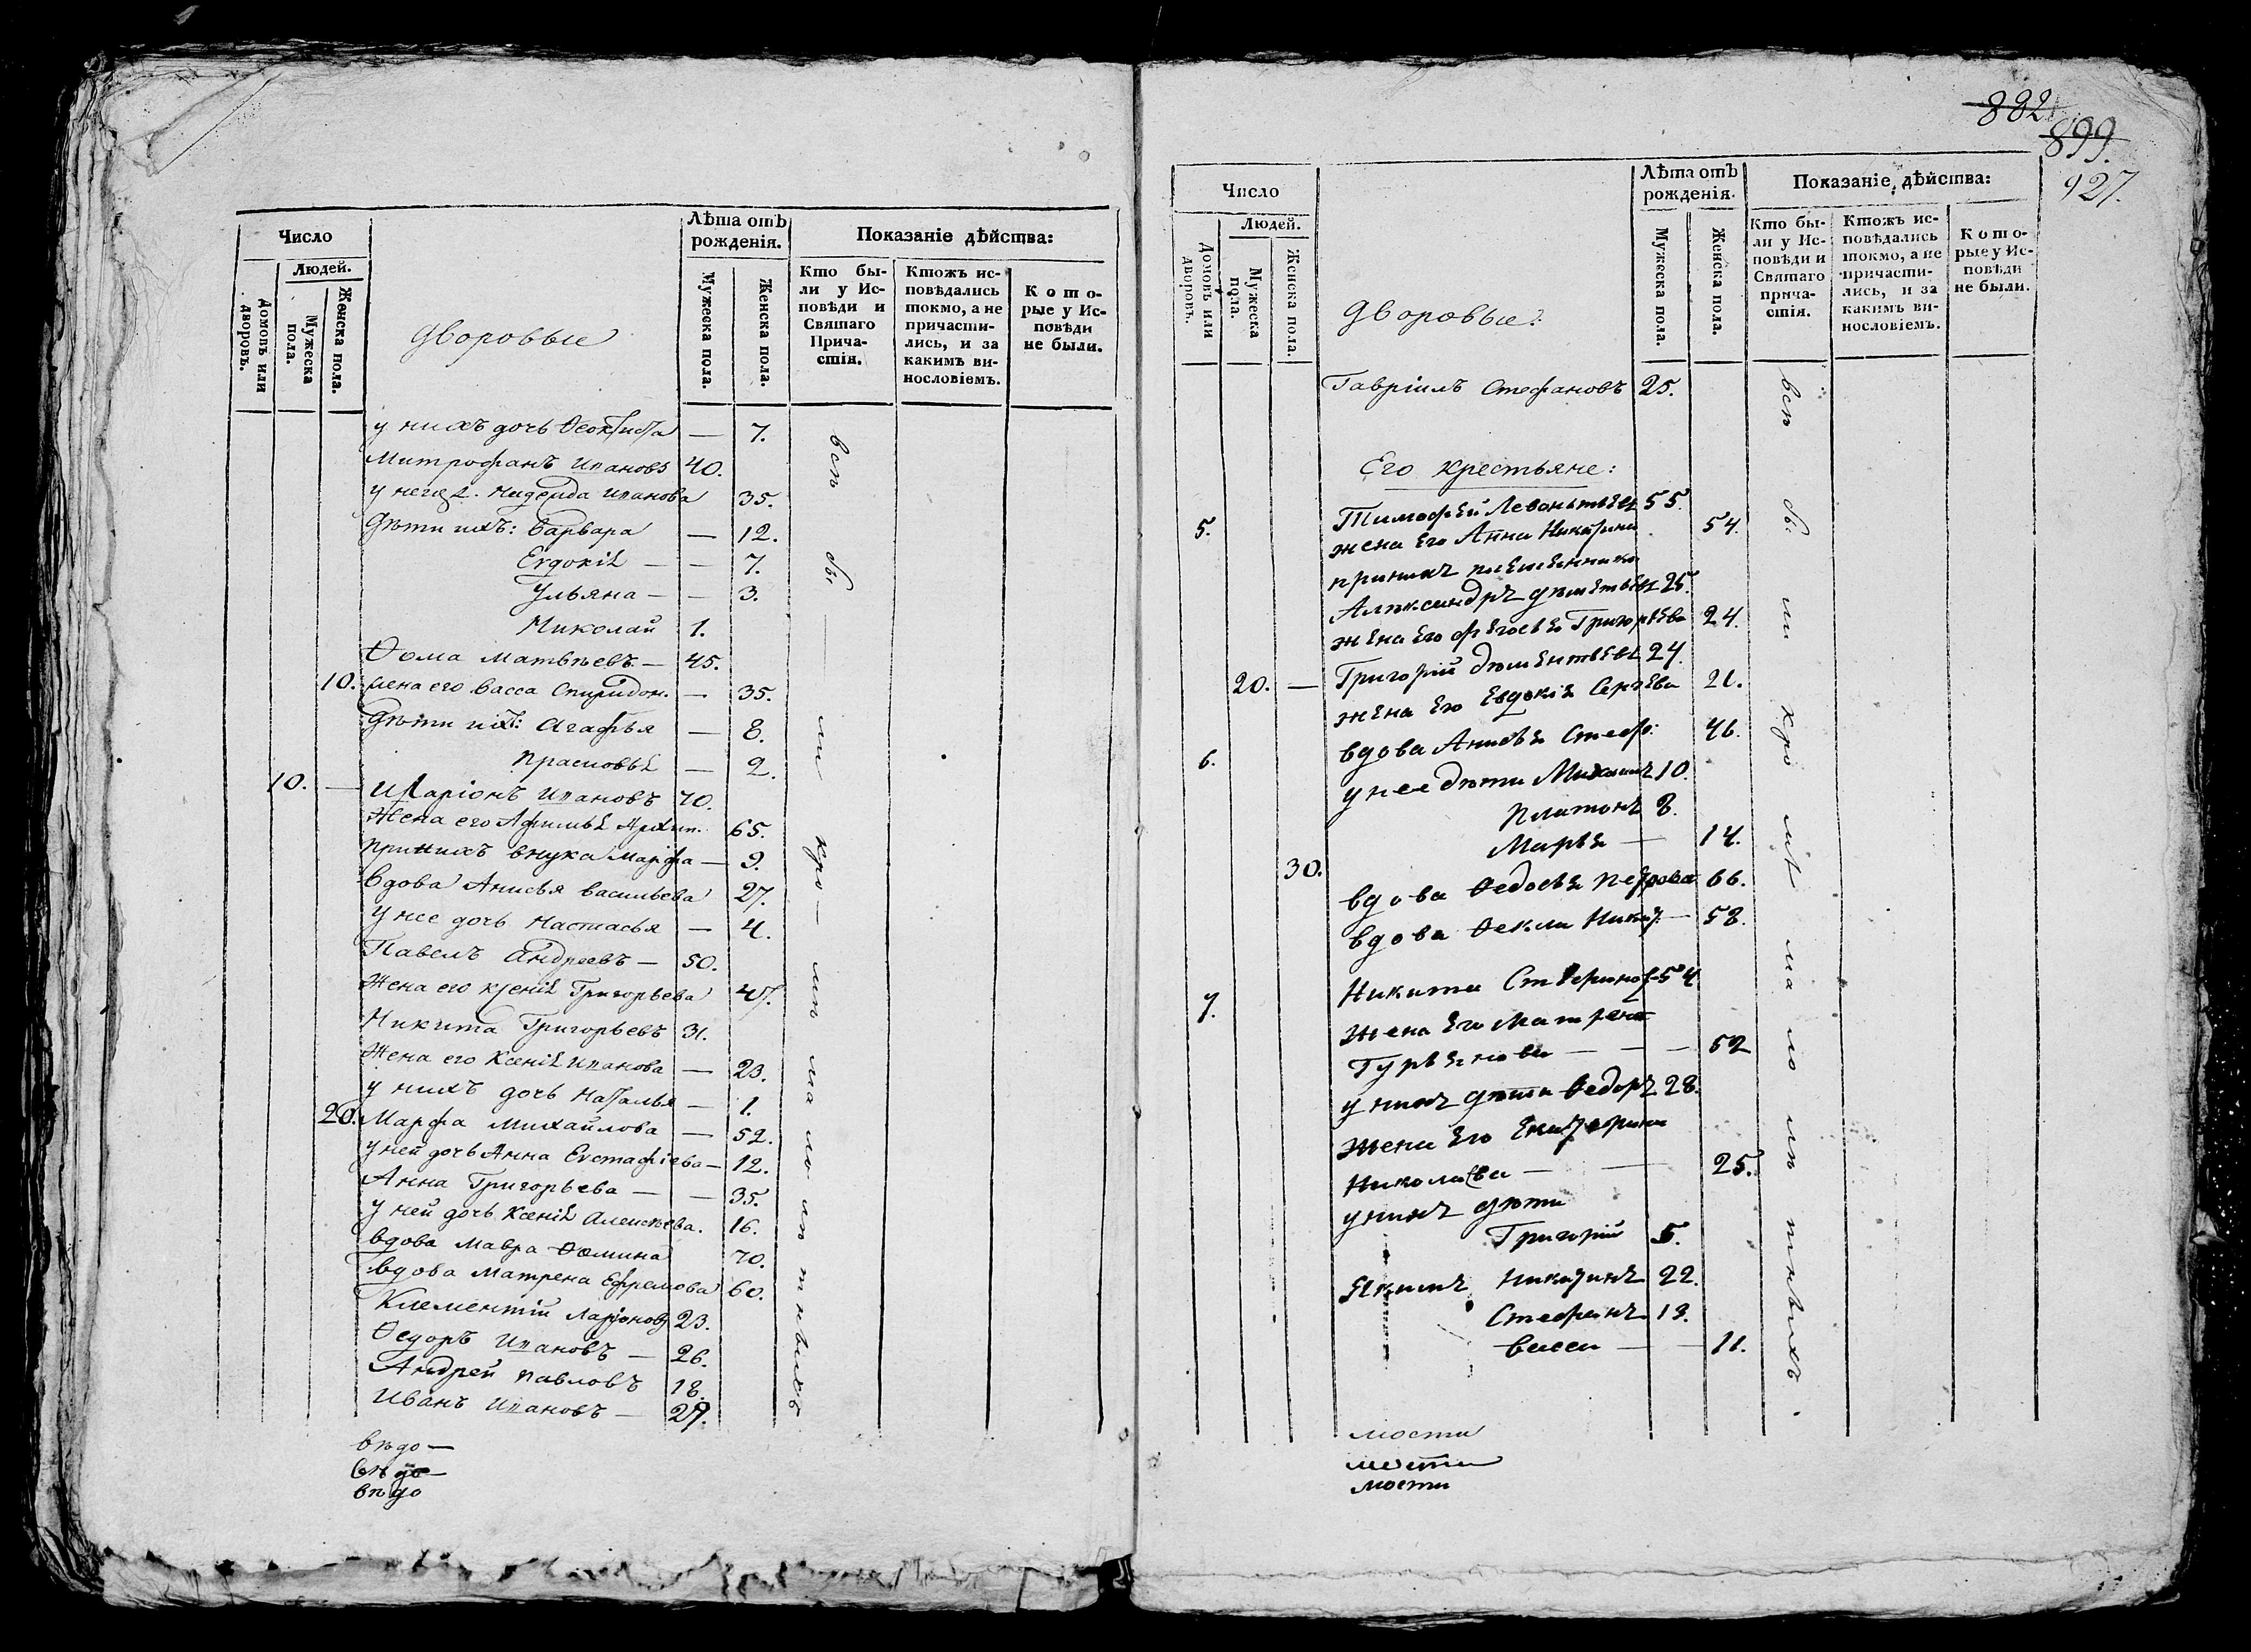 Число
Людей.
Домовъ или дворовъ.
Мужеска пола.
Женска пола.
Дворовые
Лѣта отъ рожденія.
Мужеска пола.
Женска пола.
Показаніе дѣйства:
Кто бы-
ли у Ис-
повѣди и
Святаго
Прича-
стія.
Ктожъ ис-
повѣдались
токмо, а не
причасти-
лись, и за
какимъ ви-
нословіемъ.
Кото-
рые у Ис-
повѣди
не были.
у нихъ дочь Ѳеоктиста — 7.
Митрофанъ Ивановъ 40.
Надежда Иванова 35.
Дѣти ихъ: Варвара — 12.
Евдокія — — 7.
Ульяна — — 3.
Николай 1.
Ѳома Матвѣевъ — 45.
10. жена его Васса Спиридон. — 35.
Дѣти ихъ: Агафья — 8.
Прасковья — 2.
10. — Иларіонъ Ивановъ 70.
Жена его Афимья Архип. 65.
При нихъ внука Марфа — 9.
Вдова Анисья Васильева 27.
У нее дочь Настасья — 4.
Павелъ Андреевъ — 50.
Жена его Ксенія Григорьева 47.
Никита Григорьевъ 31.
Жена его Ксенія Иванова — 23.
у нихъ дочь Наталья — 1.
20. Марфа Михайлова — 52.
у ней дочь Анна Евстафіева — 12.
Анна Григорьева — — 35.
у ней дочь Ксенія Алексѣева. 16.
вдова Мавра Ѳомина 70.
вдова Матрена Ефремова 60.
Клементій Ларіоновъ 23.
Ѳедоръ Ивановъ — 26.
Андрей Павловъ 18.
Иванъ Ивановъ — 27.
всѣ бы — ли кро — мѣ ма ло лѣ тныхъ
вѣдо —
вѣдо —
вѣдо
882
899.
927.
Число
Людей.
Домовъ или дворовъ.
Мужеска пола.
Женска пола.
Дворовые:
Лѣта отъ рожденія.
Мужеска пола.
Женска пола.
Показаніе дѣйства:
Кто бы-
ли у Ис-
повѣди и
Святаго
прича-
стія.
Ктожъ ис-
повѣдались
токмо, а не
причасти-
лись, и за
какимъ ви-
нословіемъ.
Кото-
рые у Ис-
повѣди
не были.
Гавріилъ Стефановъ 25.
Его крестьяне:
5. Тимофей Леонтьевъ 55.
жена Его Анна Никитина 54.
при нихъ племенники
Александръ 25.
жена Его Григорьева 24.
20. — Григорій 24.
жена Его Евдокія Сергѣева 21.
6. вдова Анисья Стеф: 46.
у нее дѣти Михаилъ 10.
Платонъ 8.
Марья — 14.
30. вдова Ѳедосья Петрова 66.
вдова Ѳекла Никит. — 58.
7. Никита Стефанов. 54
Жена Его Матрена
Гурьянова — — — 52
у нихъ дѣти Ѳедоръ 28.
Жена Его Екатерина
Николаева — — 25.
у нихъ дѣти
Григорій 5.
Якимъ Никитинъ 22.
Стефанъ 13.
Васса — — 11.
всѣ бы ли кро мѣ ма ло лѣ тныхъ.
мости
мости
мости